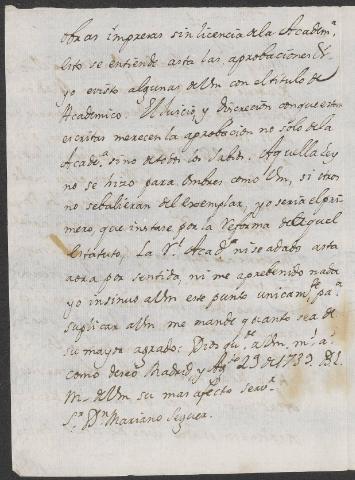 obras impresas sin licencia de la Academ.ª
esto se entiende asta las aprobaciones, y
yo e visto algunas de Vm con el titulo de
Academico. El Juicio, y discrecion con que estan
escritas merecen la aprobacion no solo de la
Acade.ª sino de todos los Sabios. Aquella Ley
no se hizo para ombres como Vm, si otros
no se balieran del exemplar, y yo seria el pri
mero, que instase por la reforma de aquel
Estatuto. La R.l Acad.ª ni se a dado asta
aora por sentida, ni me a prebenido nada
yo insinuo a Vm este punto unicam.te pa.ª
suplicar a Vm me mande quanto sea de
su mayor agrado: Dios gu.de a Vm m.s a.s
como deseo Madrid y Ag.to 23 de 1733. B.L.
M. de Vm su mas afecto serv.r
S.r Dn Mariano Seguer.